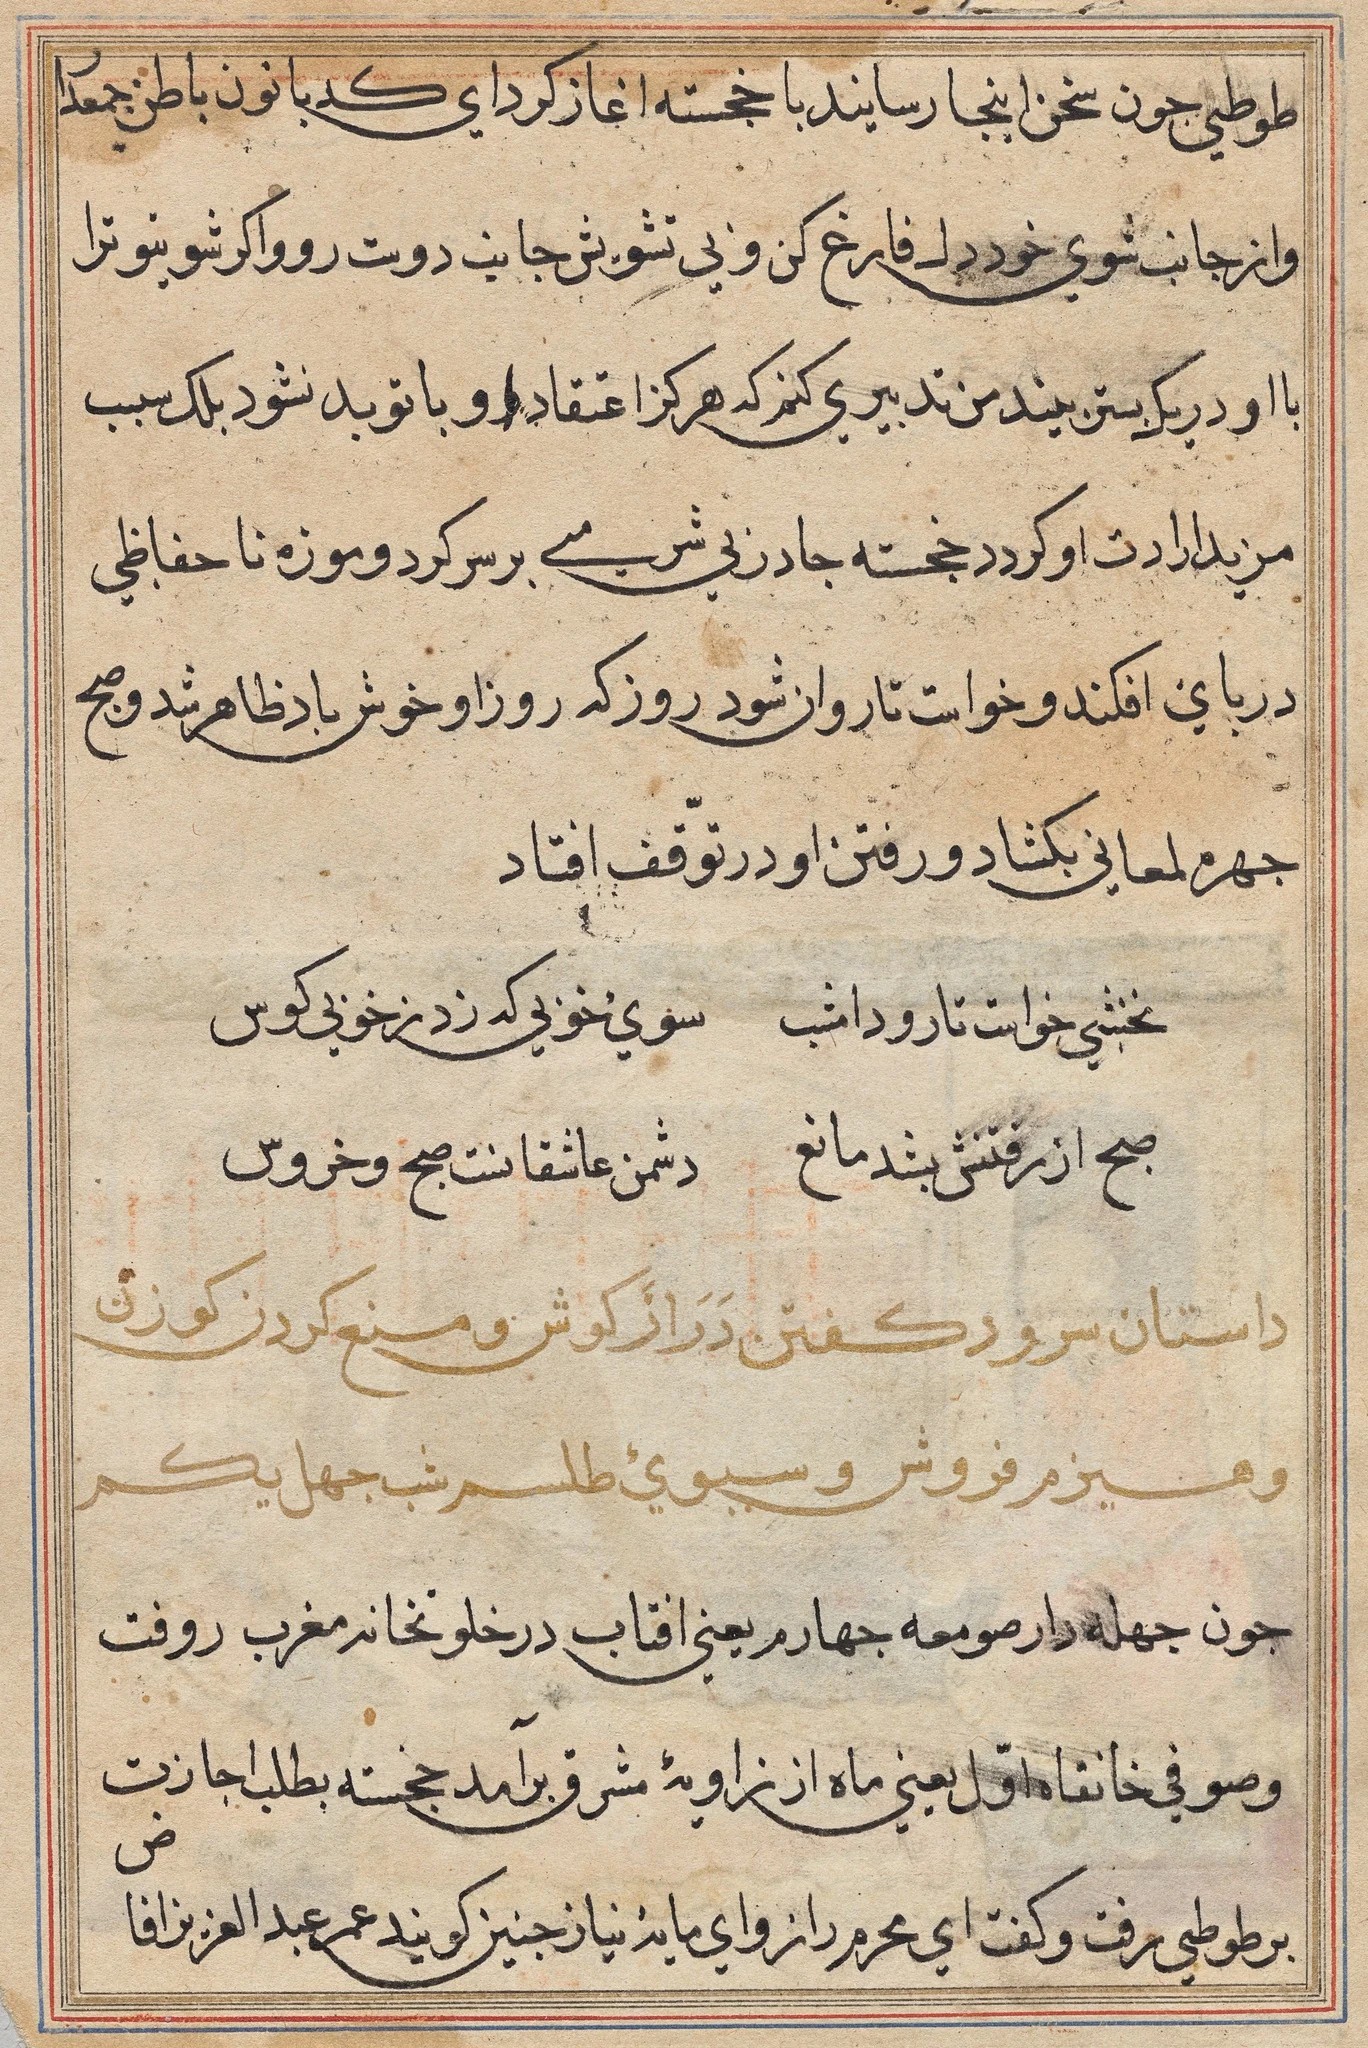 طوطي جون سخن اينجا رسايند با خجسته اغاز كرد اي كد بانون باطن جمعدا
واز جانب شوي خود دل فارغ كن و بي تشويش جانب دوست رو واكر شوي تو ترا
با او در يك بستر بيند من تدبيري كنم كه هركز اعتقاد او با تو بد نشود بلك سبب
مزيد ارادت او كردد خجسته جادر بي شرمي بر سر كرد و موزه نا حفاظي
در باي افكند و خواست تا روان شود روز كه روز او خوش باد ظاهر شد و صبح
جهره لمعاني بكشاد و رفتن او در توّقف افتاد
نخشبي خواست تا رود امشب سوئ خوبي كه زد ز خوبي كوس
صبح از رفتنش بشد مانع دشمن عاشقانست صبح و خروس
داستان سرود كفتن دَرَازَكوش و منع كردن كوزن
و هيزم فروش و سبوئ طلسم شب جهل يكم
جون جهله دار صومعه جهارم يعني افتاب در خلوتخانه مغرب رو فت
و صوفي خانقاه اوّل يعني ماه از زاويهٔ مشرق برآمد خجسته بطلب اجازت
بر طوطي رفت و كفت اي محرم راز و اي مايهٔ نياز جنين كويند عمر عبد العزيز افا
ض